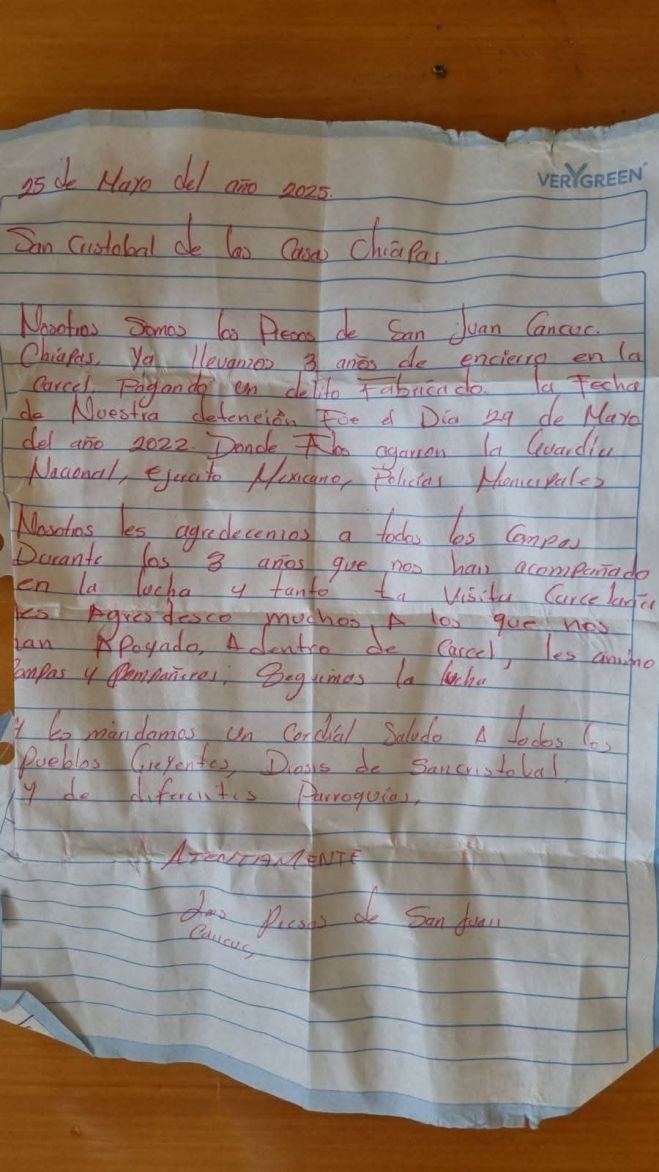 VERYGREEN
25 de Mayo del año 2025.
San Cristobal de las Casas Chiapas.
Nosotros Somos los Presos de San Juan Cancuc.
Chiapas, Ya llevamos 3 años de encierro en la
Carcel, Pagando un delito Fabricado. la Fecha
de Nuestra detención Fue el Día 29 de Mayo
del año 2022. Donde Nos agarron la Guardia
Nacional, ejercito Mexicano, Policias Municipales
Nosotros les agredecemos a todos los Compas
Durante los 3 años que nos han acompañado
en la lucha y tanto la Visita Carcelaria
les Agresdesco muchos A los que nos
han Apoyado, Adentro de Carcel, les animo
Compas y Compañeros; Seguimos la lucha
Y les mandamos un Cordial Saludo A todos los
Pueblos Creyentes, Diosis de Sancristobal,
y de diferentes Parroquias,
ATENTAMENTE
Los Presos de San Juan
Cancuc,